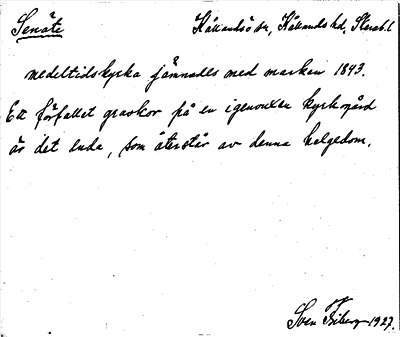 Senäte Kållandsö sn, Kållands hd, Skarab.l
medeltidskyrka jämnades med marken 1843.
Ett förfallet graskor på en igenvuxen kyrkogård
är det enda, som återstår av denna helgedom.
Sven Friberg 1927.